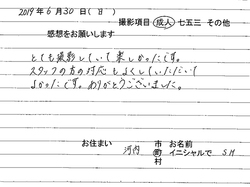 2019年6月30日(日)
撮影項目 成人 七五三 その他
感想をお願いします
とても撮影していて楽しかったです。
スタッフの方の対応もよくしていただいて
よかったです。ありがとうございました。
お住まい 河内 市 町 村 お名前 イニシャルで SM